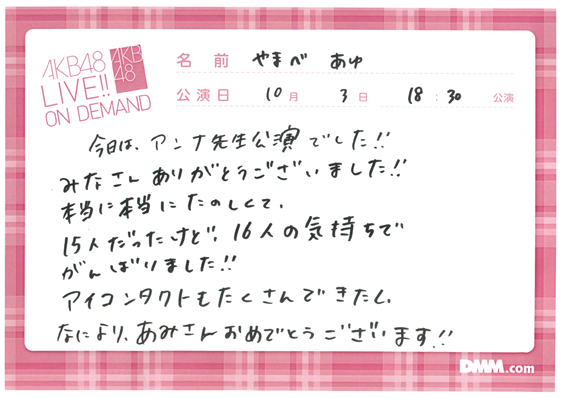 AKB48
LIVE!!
ON DEMAND
AKB
48
名前 やまべ あゆ
公演日 10月 3日 18:30 公演
今日は、アンナ先生公演でした!!
みなさんありがとうございました!!
本当に本当にたのしくて、
15人だったけど、16人の気持ちで
がんばりました!!
アイコンタクトもたくさんできたし、
なにより、あみさんおめでとうございます!!
DMM.com